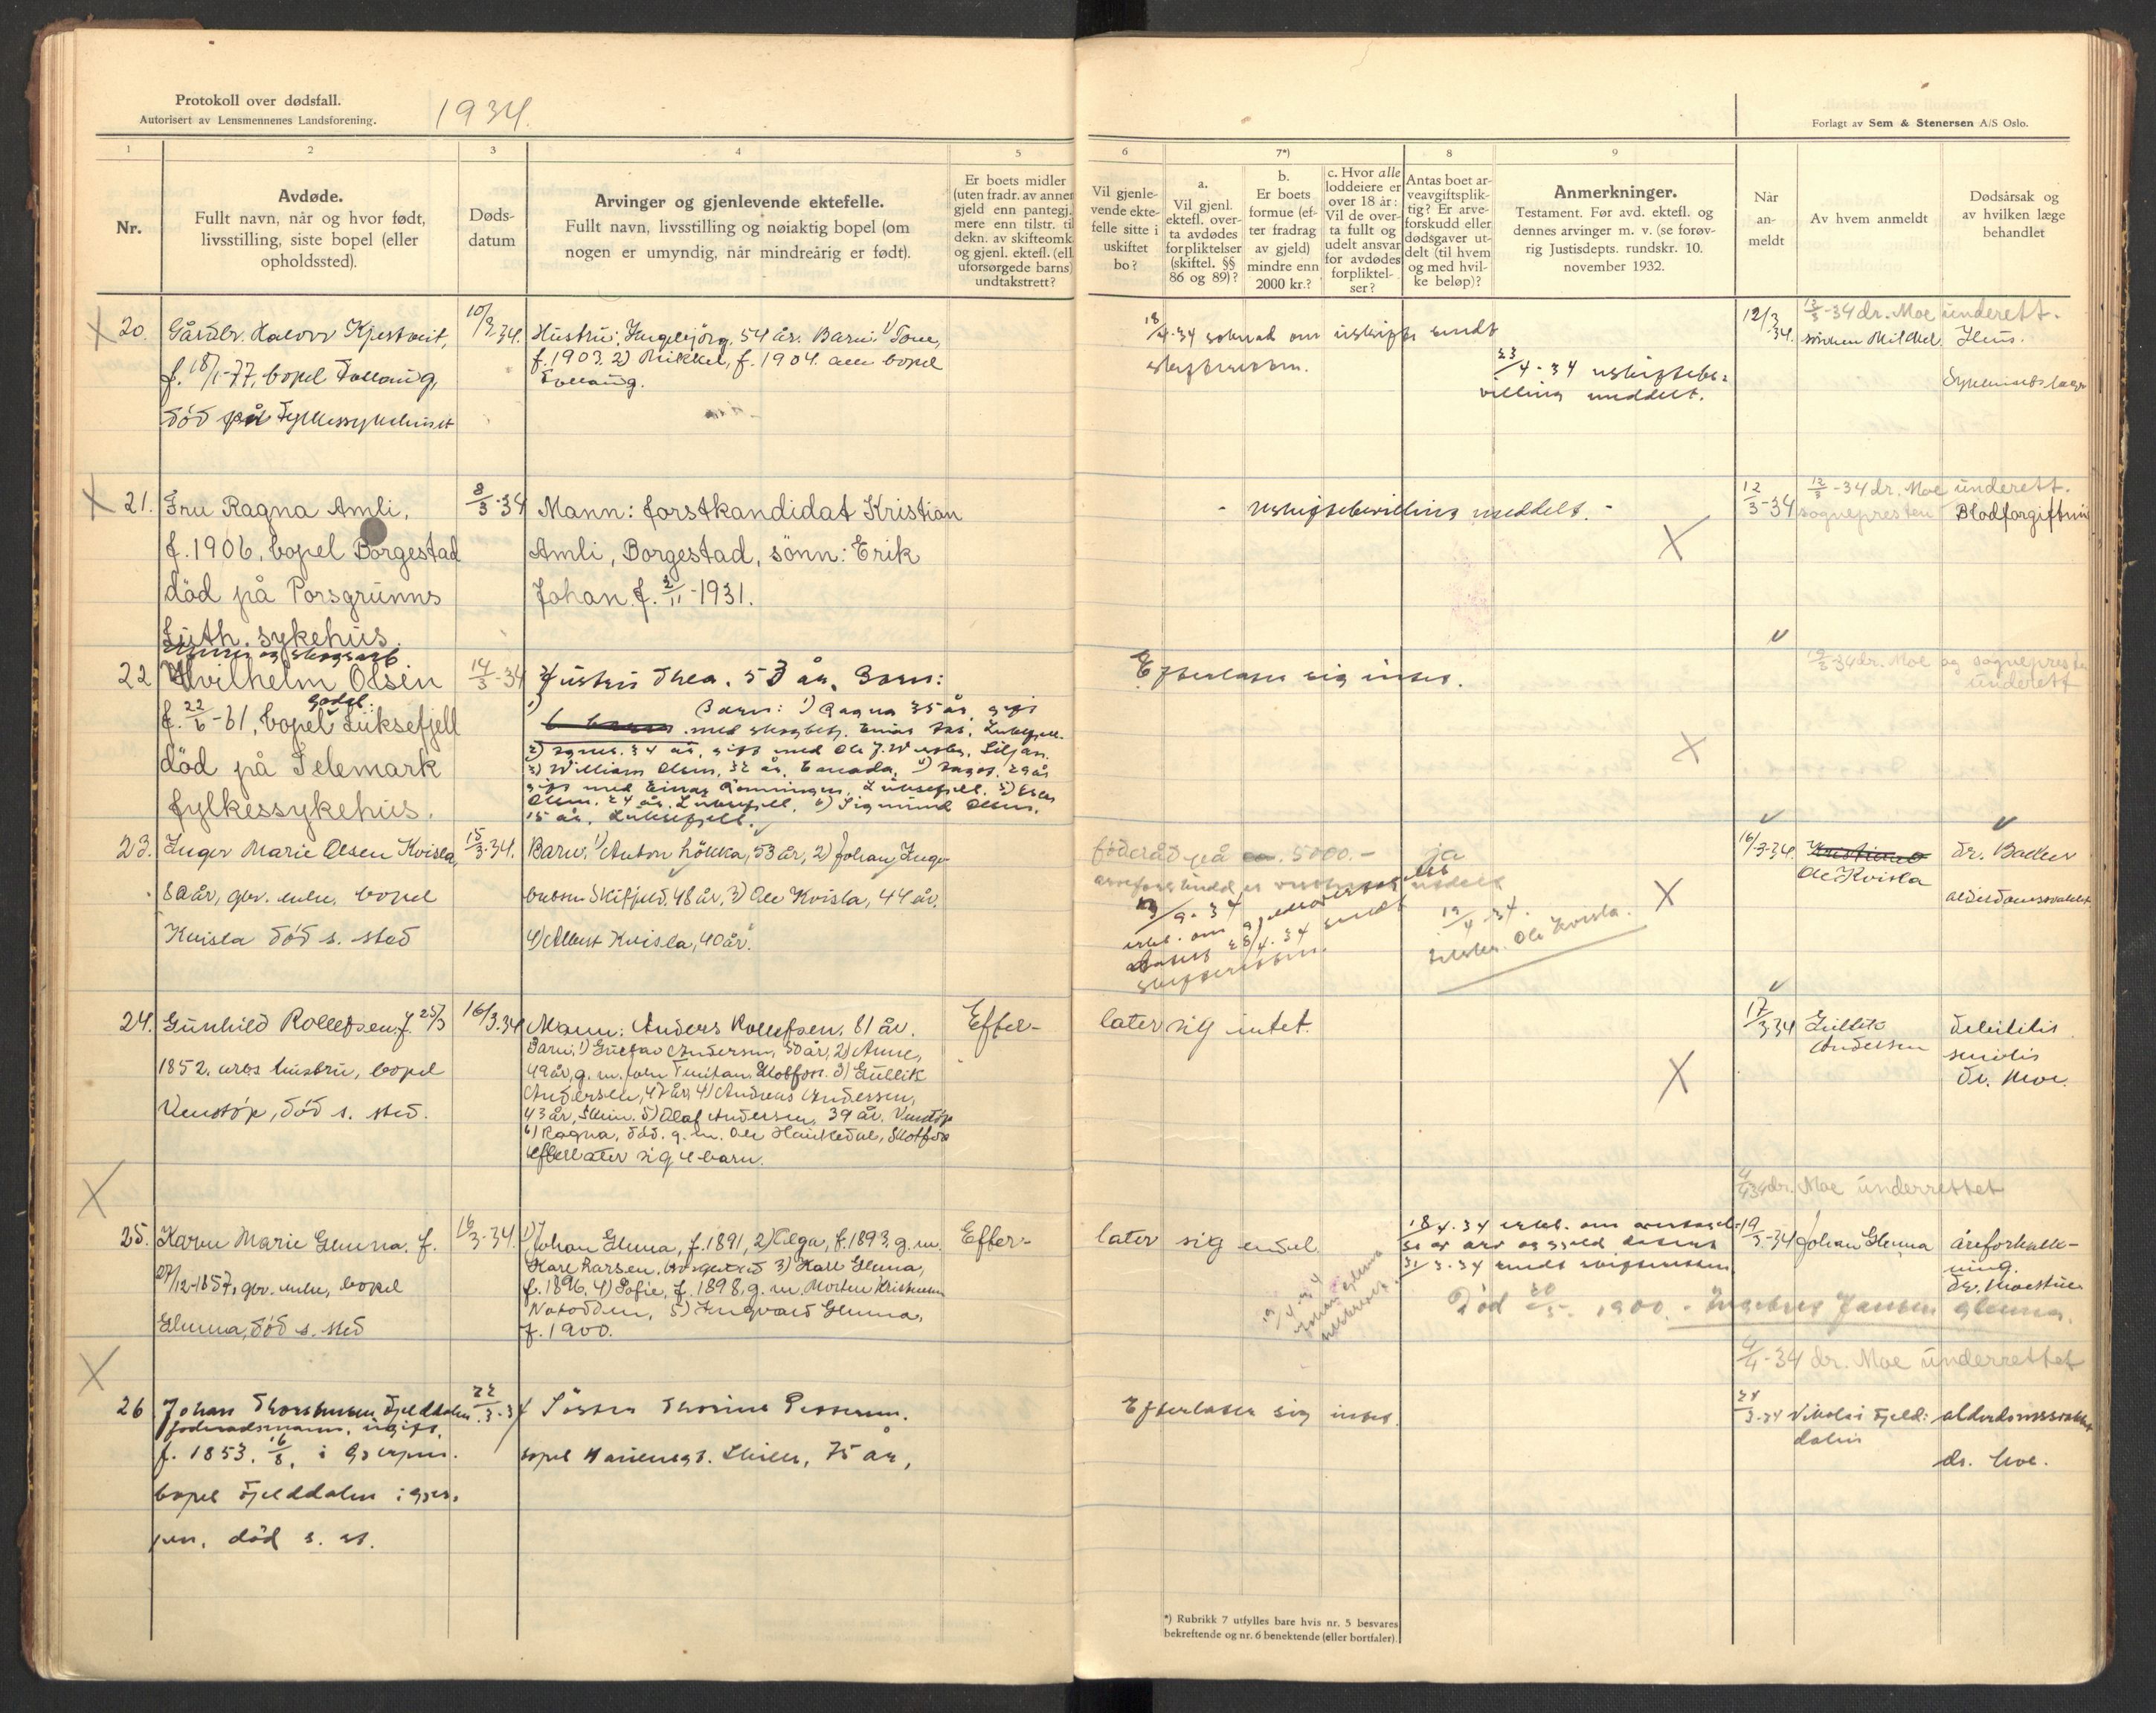 Protokoll over dødsfall.
Autorisert av Lensmennenes Landsforening.
1934.
Forlagt av Sem & Stenersen A/S Oslo.
1
2
3
4
5
6
7*)
8
9
Nr.
Avdøde.
Fullt navn, når og hvor født,
livsstilling, siste bopel (eller
opholdssted).
Døds-
datum
Arvinger og gjenlevende ektefelle.
Fullt navn, livsstilling og nøiaktig bopel (om
nogen er umyndig, når mindreårig er født).
Er boets midler
(uten fradr. av annen
gjeld enn pantegj.
mere enn tilstr. til
dekn. av skifteomk.
og gjenl. ektefl. (ell.
uforsørgede barns)
undtakstrett?
Vil gjenle-
vende ekte-
felle sitte i
uskiftet
bo?
a.
Vil gjenl.
ektefl. over-
ta avdødes
forpliktelser
(skiftel. §§
86 og 89)?
b.
Er boets
formue (ef-
ter fradrag
av gjeld)
mindre enn
2000 kr.?
c. Hvor alle
loddeiere er
over 18 år:
Vil de over-
ta fullt og
udelt ansvar
for avdødes
forpliktel-
ser?
Antas boet ar-
veavgiftsplik-
tig? Er arve-
forskudd eller
dødsgaver ut-
delt (til hvem
og med hvil-
ke beløp)?
Anmerkninger.
Testament. Før avd. ektefl. og
dennes arvinger m. v. (se forøv-
rig Justisdepts. rundskr. 10.
november 1932.
Når
an-
meldt
Av hvem anmeldt
Dødsårsak og
av hvilken læge
behandlet
X 20.
f. 18/1-77, bopel Follaug,
död på Fylkessykehuset
10/3 34.
Hustru: Ingebjörg, 54 år. Barn: 1) Tone,
f. 1903. 2) Mikkel, f. 1904. alle bopel
Follaug.
18/4-34 söknad om uskifte sendt
skifteretten.
23/4-34 uskiftebe-
villing meddelt.
12/3 34.
12/3-34 dr. Moe underett.
sönnen Mikkel
X 21.
Fru Ragna Amli,
f. 1906, bopel Borgestad
död på Porsgrunns
Luth. sykehus.
8/3-34
Mann: forstkandidat Kristian
Amli, Borgestad, sönn: Erik
Johan f. 2/11-1931.
- uskiftebevilling meddelt. -
X
12/3-34
12/3-34 dr. Moe underett.
sognepresten
Blodforgiftning
22
og skogsarb.
Vilhelm Olsen
f. 22/6-61, bopel Godal: Luksefjell
död på Telemark
fylkessykehus.
14/3-34
Hustru Thea. 53 år. Barn:
Barn: 1) Ragna 35 år, gift
2) Agnes. 34 år, gift med Ole J. Siljan.
3) William Olsen, 32 år, Canada, 29 år
gift med Einar Rönningen, Luksefjell.
Olsen, 24 år. Luksefjell, 6) Sigmund Olsen,
15 år, Luksefjell.
Efterlater sig intet.
X
dr. Moe og sognepresten
underett
23.
Inger Marie Olsen Kvisla,
80 år, gbr. enke, bopel
Kvisla död s. sted
15/3-34.
Barn: 1) Anton Lökka, 53 år, 2) Johan Inge-
bretsen Skifjeld, 48 år, 3) Ole Kvisla, 44 år,
4) Albert Kvisla, 40 år.
föderåd på 5000.-
ja
28/4-34 sendt
skifteretten.
19/4-34.
Ole Kvisla.
X
16/3-34.
Ole Kvisla
alderdomssvakhet
24.
Gunhild Rollefsen, f. 25/3
1852, arb. hustru, bopel
Venstöp, död s. sted.
16/3.34
Mann: Anders Rollefsen, 81 år.
Barn: 1) Gustav Andersen, 50 år, 2) Anne,
3) Gullik
Andersen, 47 år, 4) Andreas Andersen,
43 år, Skien. 5) Olaf Andersen, 39 år. Venstöp
6) Ragna, död. g. m. Ole Haukedal, Skotfos
efterlater sig 4 barn.
Efter-
later sig intet.
X
17/3 34
Gullik
Andersen
senilis
dr. Moe.
4/4 34 dr. Moe underrettet
X
25.
Karen Marie Glenna, f.
27/12-1857, gbr. enke, bopel
Glenna, död s. sted
16/3-34.
1) Johan Glenna, f. 1891, 2) Olga, f. 1893, g. m.
Karl Larsen, Borgestad 3) Karl Glenna,
f. 1896, 4) Sofie, f. 1898, g. m. Morten Kristensen
Notodden, 5) Ingvald Glenna,
f. 1900.
Efter-
later sig endel
31/3-34 sendt skifteretten
Johan Glenna
Död 1900. - Ingebret Jansen Glenna.
19/3-34
Johan Glenna
åreforkalk-
ning.
4/4-34 dr. Moe underrettet
X
26
Johan Fjelddalen
föderådsmann, ugift,
f. 1853. 16/8, i Gjerpen.
bopel Fjelddalen i Gjer-
pen, död s. st.
22/3-34
Söster Thorine Pettersen.
bopel Skien, 75 år,
Efterlater sig intet.
24/3-34
Nikolai Fjeld-
dalen
alderdomssvakhet
dr. Moe.
*) Rubrikk 7 utfylles bare hvis nr. 5 besvares
bekreftende og nr. 6 benektende (eller bortfaler).